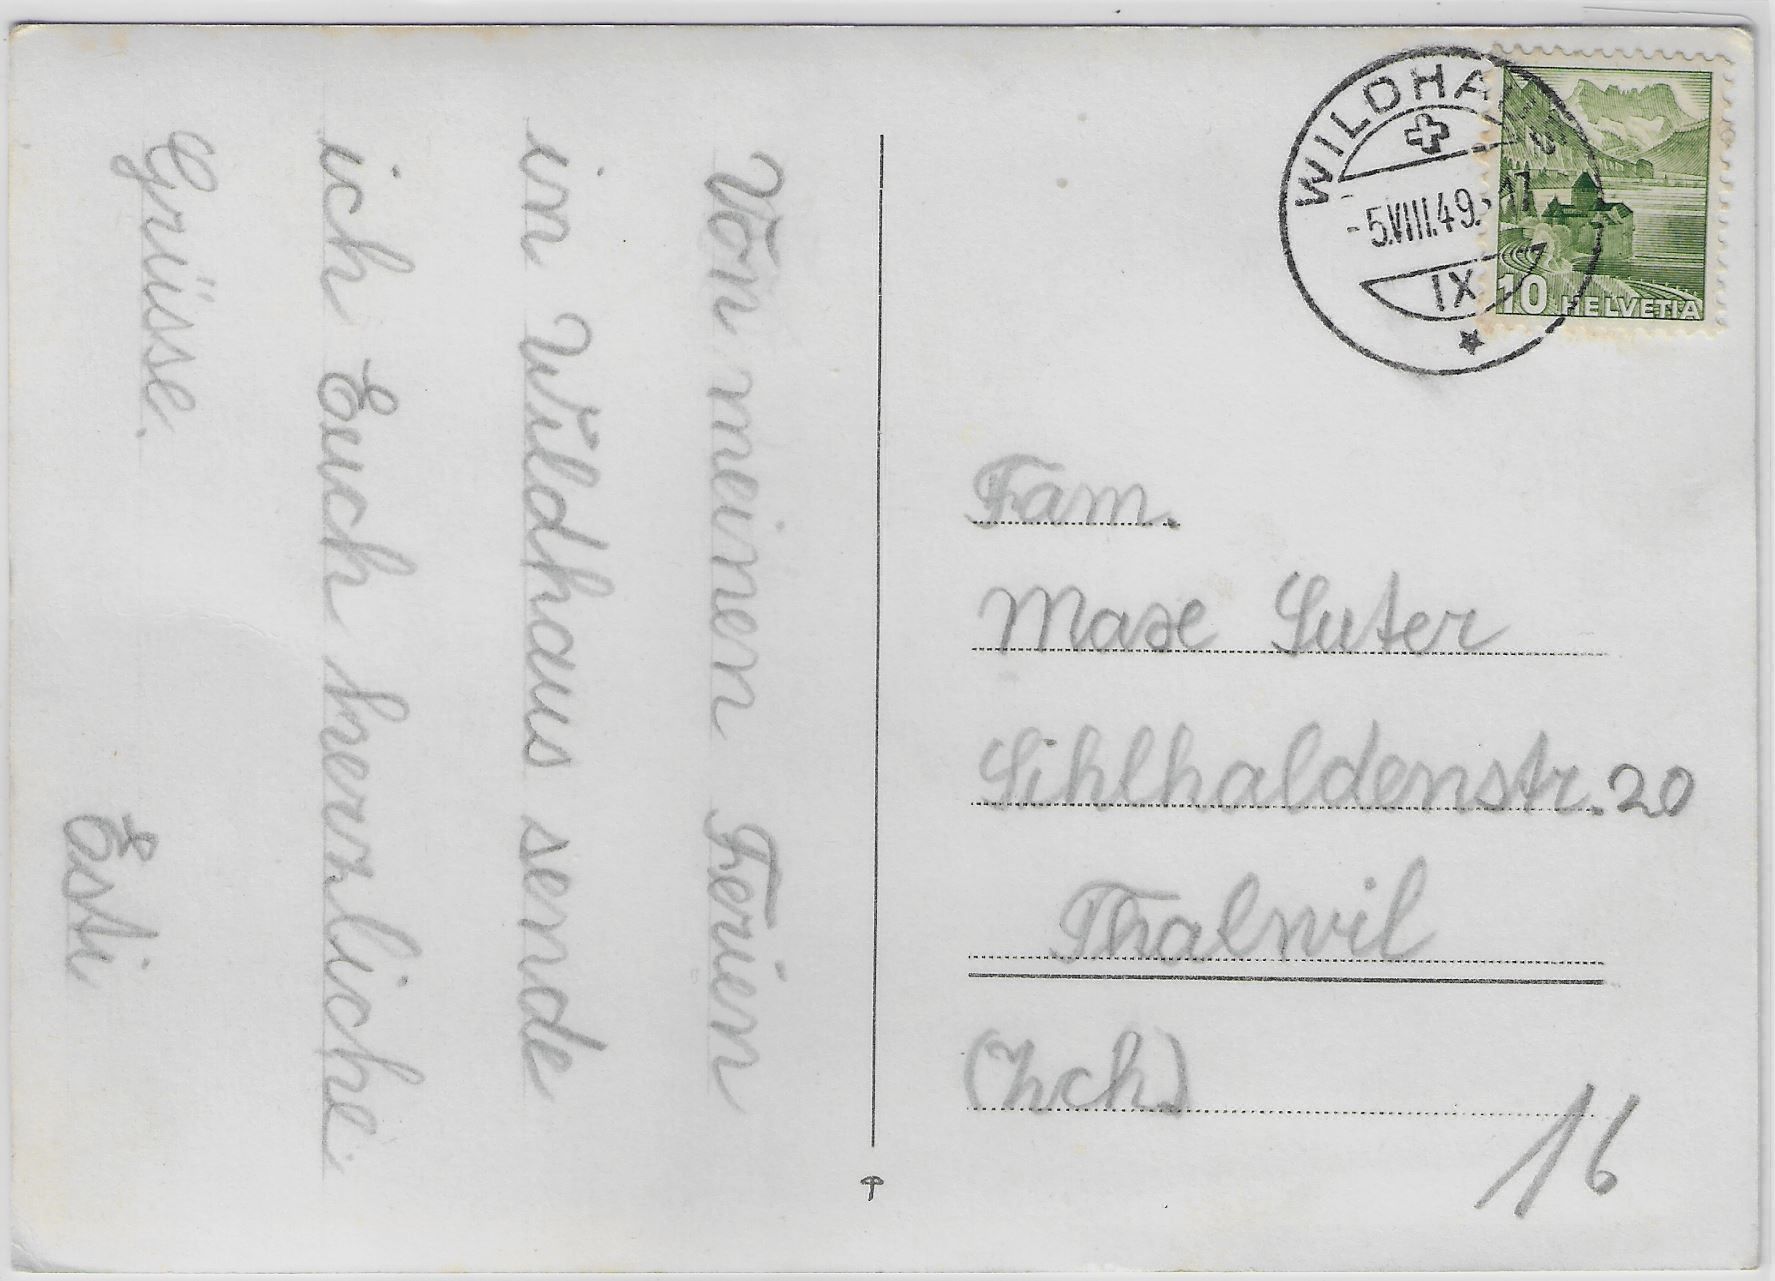 Von meinen Ferien
in Wildhaus sende
ich Euch herzliche
Grüsse.
Esti
WILDHAUS
-5.VIII.49.-17
IX
10 HELVETIA
Fam.
Max Suter
Sihlhaldenstr. 20
Thalwil
(Zch)
16